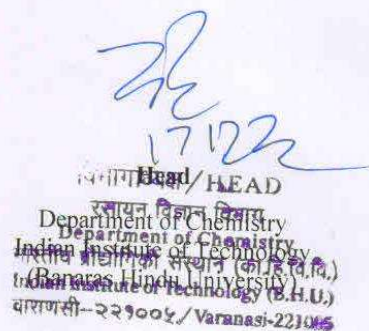 Head
विभागाध्यक्ष/HEAD
रसायन विज्ञान विभाग
Department of Chemistry
Department of Chemistry
Indian Institute of Technology
भारतीय प्रौद्योगिकी संस्थान (का.हि.वि.वि.)
(Banaras Hindu University)
Indian Institute of Technology (B.H.U.)
वाराणसी-२२१००५/Varanasi-221005